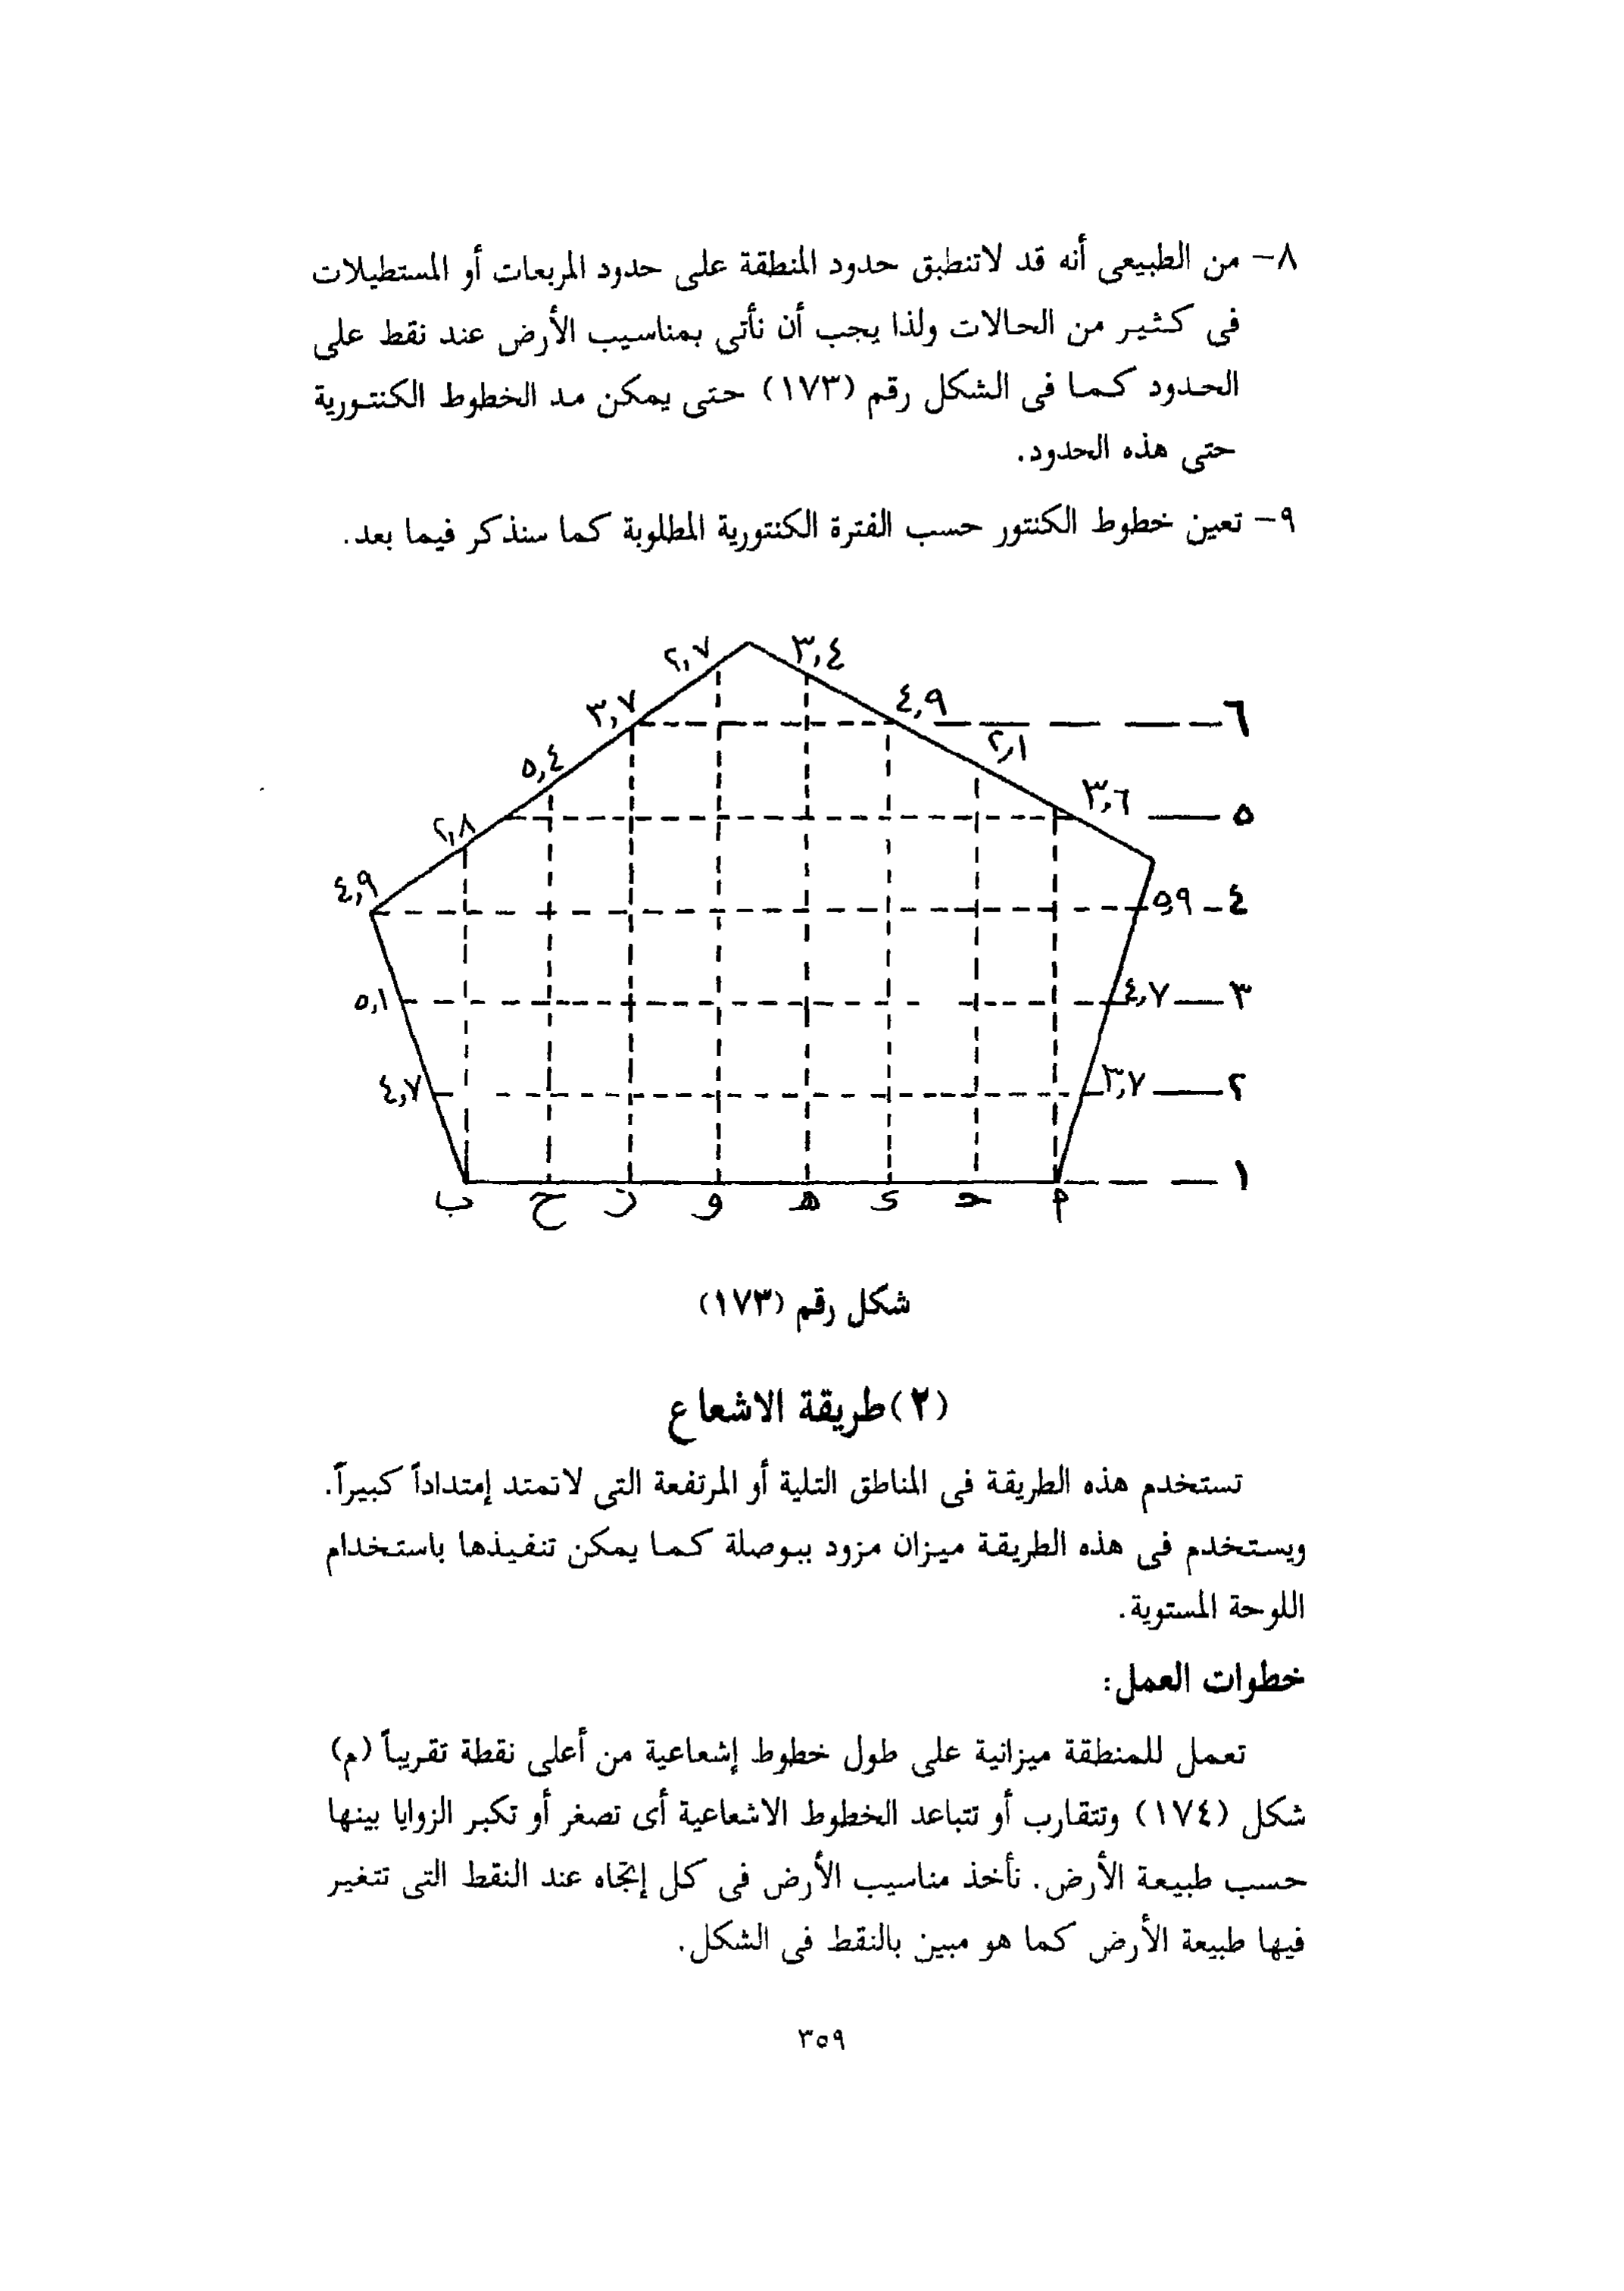 ٨- من الطبيعى أنه قد لاتنطبق حدود المنطقة على حدود المربعات أو المستطيلات
فى كثير من الحالات ولذا يجب أن نأتى بمناسيب الأرض عند نقط على
الحدود كما فى الشكل رقم (١٧٣) حتى يمكن مد الخطوط الكنتورية
حتى هذه الحدود.
٩- تعين خطوط الكنتور حسب الفترة الكنتورية المطلوبة كما سنذكر فيما بعد.
٣,٤
٢,٧
٤,٩
٣,٧
٦
٢,١
٥,٤
٣,٦
٥
٢,٨
٤,٩
٥,٩
٤
٥,١
٤,٧
٣
٤,٧
٣,٧
٢
١
م
حـ
ى
هـ
و
ز
ح
ب
شكل رقم (١٧٣)
(٢) طريقة الاشعاع
تستخدم هذه الطريقة فى المناطق التلية أو المرتفعة التى لاتمتد إمتداداً كبيراً.
ويستخدم فى هذه الطريقة ميزان مزود ببوصلة كما يمكن تنفيذها باستخدام
اللوحة المستوية.
خطوات العمل:
تعمل للمنطقة ميزانية على طول خطوط إشعاعية من أعلى نقطة تقريباً (م)
شكل (١٧٤) وتتقارب أو تتباعد الخطوط الاشعاعية أى تصغر أو تكبر الزوايا بينها
حسب طبيعة الأرض. نأخذ مناسيب الأرض فى كل إتجاه عند النقط التى تتغير
فيها طبيعة الأرض كما هو مبين بالنقط فى الشكل.
٣٥٩